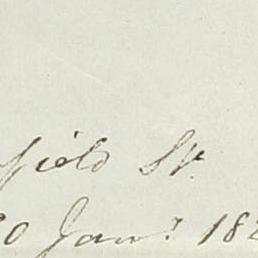 field St.
20 Jany. 182